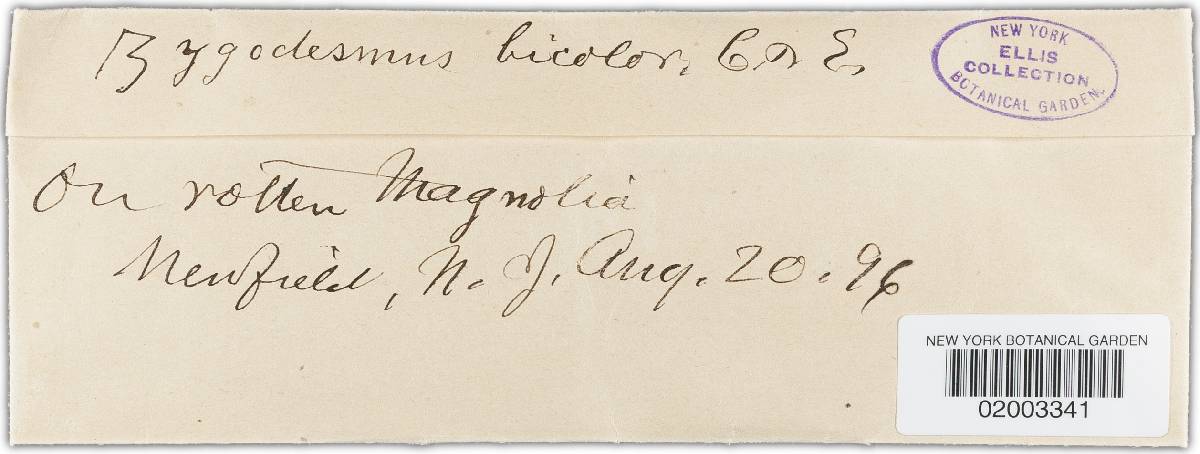 Zygodesmus bicolor, C & E.
NEW YORK
ELLIS
COLLECTION
BOTANICAL GARDEN.
On rotten Magnolia
Newfield, N. J. Aug. 20. 96
NEW YORK BOTANICAL GARDEN
02003341